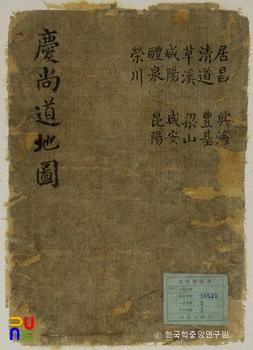 慶尚道地圖
居昌 興海
清道 豊基
草溪 梁山
咸陽 咸安
醴泉 昆陽
榮川
10512
2
1
PUNE
© 한국학중앙연구원